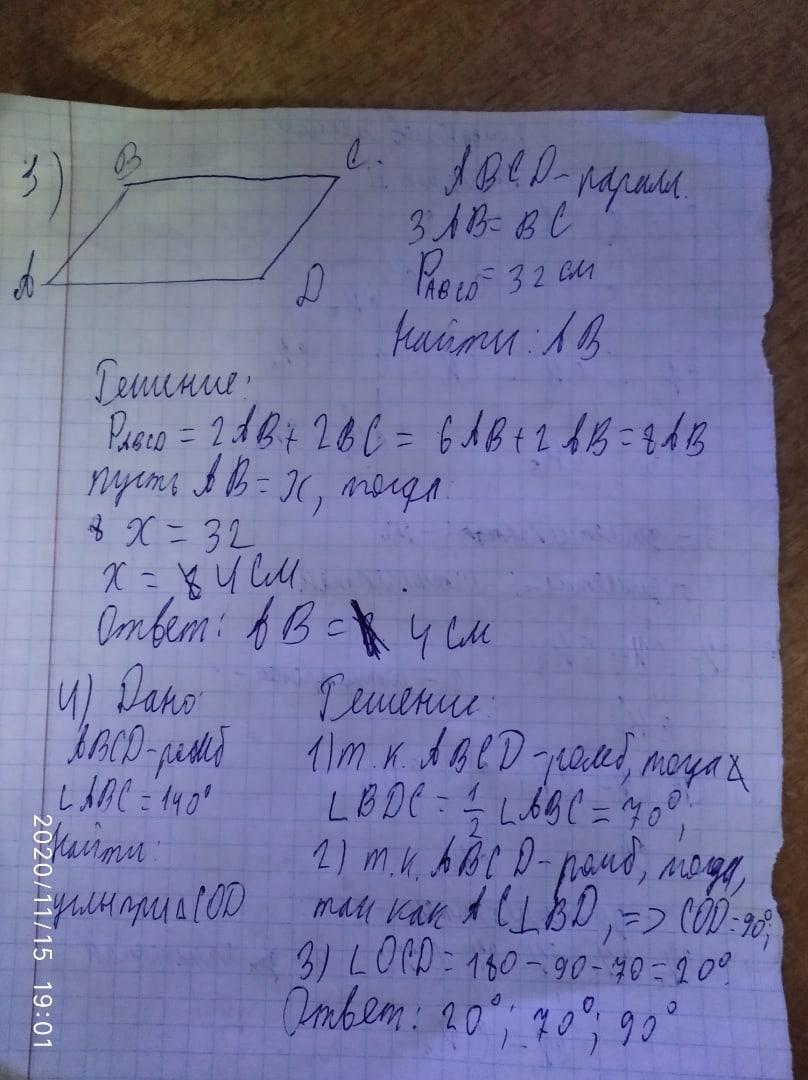 3)
B C
A D
ABCD-паралл.
3 AB = BC
PABCD = 32 см
Найти: AB
Решение:
PABCD = 2AB + 2BC = 6AB + 2AB = 8AB
пусть AB = x, тогда
8 x = 32
x = 4 см
Ответ: AB = 4 см
4) Дано:
ABCD-ромб
∠ABC = 140°
Найти:
углы при ΔCOD
Решение:
1) т.к. ABCD-ромб, тогда
∠BDC = 1/2 ∠ABC = 70°;
2) т.к. ABCD-ромб, тогда,
так как AC⊥BD, => COD=90°;
3) ∠OCD = 180 - 90 - 70 = 20°.
Ответ: 20°; 70°; 90°
2020/11/15 19:01